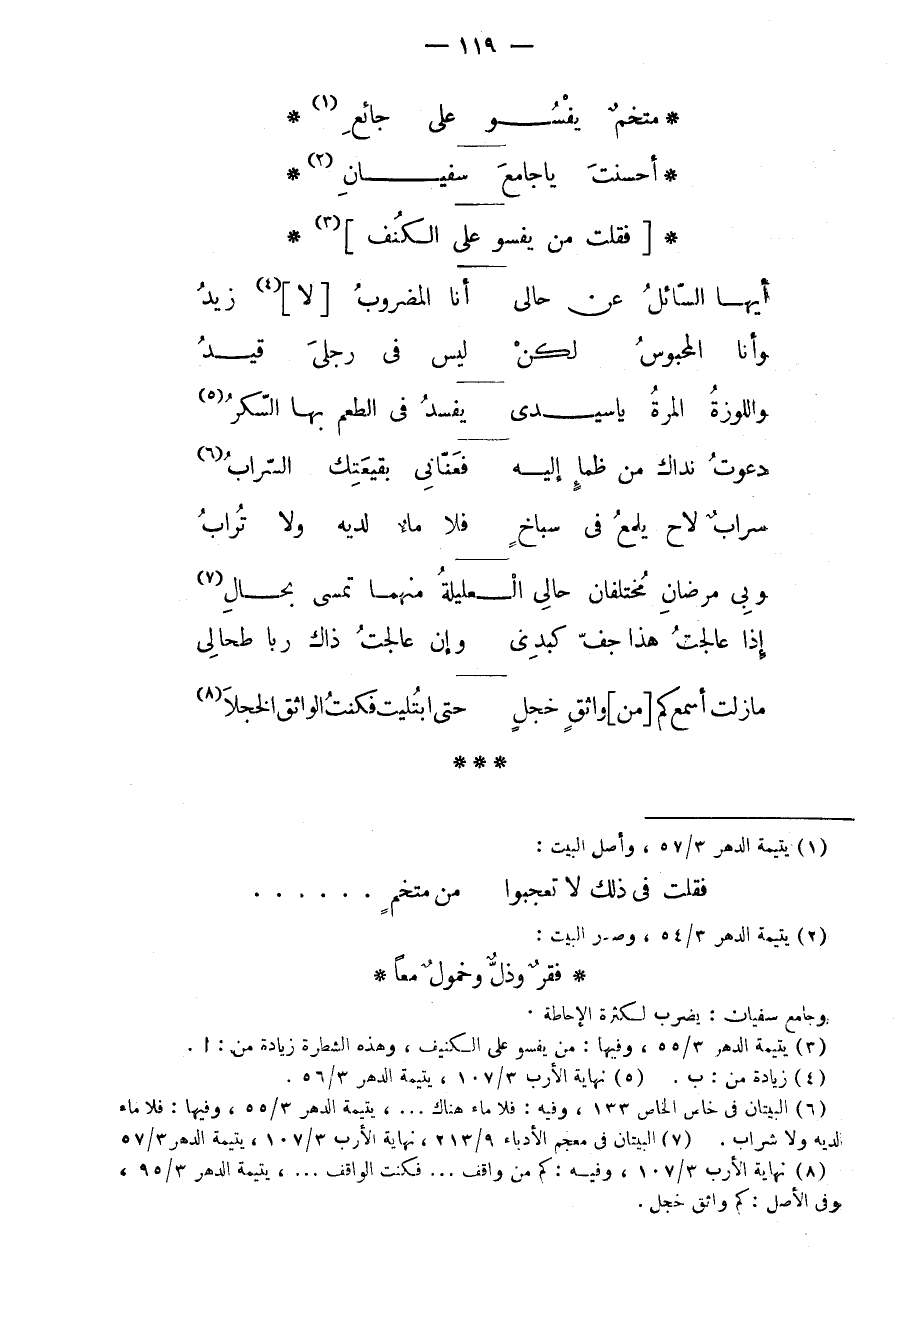 — ١١٩ —
* متخمٌ يفْسُـــو على جائعٍ (١) *
* أحسنتَ ياجامعَ سفيـــانِ (٢) *
* [ فقلت من يفسو على الكُنف ] (٣) *
أيهـا السّائلُ عن حالى أنا المضروبُ [ لا ] (٤) زيدُ
وأنا المحبوسُ لكنْ ليس فى رجلىَ قيـدُ
واللوزةُ المرةُ ياسيـدى يفسدُ فى الطعم بهـا السّكرُ (٥)
دعوتُ نداك من ظماٍ إليـه فعَنّانِى بقيعَتِك السّرابُ (٦)
سرابٌ لاح يلمعُ فى سباخٍ فلا ماء لديه ولا تُرابُ
وبِى مرضانِ مُختلفان حالِى الْـعليلةُ منهمـا تمسى بحـالِ (٧)
إذا عالجتُ هذا جفّ كبدِى وإن عالجتُ ذاك ربا طحالِى
مازلت أسمع كم [من] واثقٍ خجلٍ حتى ابتُليت فكنتُ الواثق الخجلاَ (٨)
* * *
(١) يتيمة الدهر ٥٧/٣ ، وأصل البيت :
فقلت فى ذلك لا تعجبوا من متخمٍ . . . . . .
(٢) يتيمة الدهر ٥٤/٣ ، وصدر البيت :
* فقرٌ وذلٌّ وخمولٌ معاً *
وجامع سفيان : يضرب لكثرة الإحاطة .
(٣) يتيمة الدهر ٥٥/٣ ، وفيها : من يفسو على الكنيف ، وهذه الشطارة زيادة من : ا .
(٤) زيادة من : ب . (٥) نهاية الأرب ١٠٧/٣ ، يتيمة الدهر ٥٦/٣ .
(٦) البيتان فى خاس الخاص ١٣٣ ، وفيه : فلا ماء هناك ... ، يتيمة الدهر ٥٥/٣ ، وفيها : فلا ماء
لديه ولا شراب . (٧) البيتان فى معجم الأدباء ٢١٣/٩ ، نهاية الأرب ١٠٧/٣ ، يتيمة الدهر ٥٧/٣
(٨) نهاية الأرب ١٠٧/٣ ، وفيـه : كم من واقف ... فكنت الواقف ... ، يتيمة الدهر ٩٥/٣ ،
وفى الأصل : كم واثق خجل .